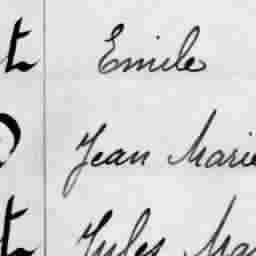 Emile
Jean Marie
Jules